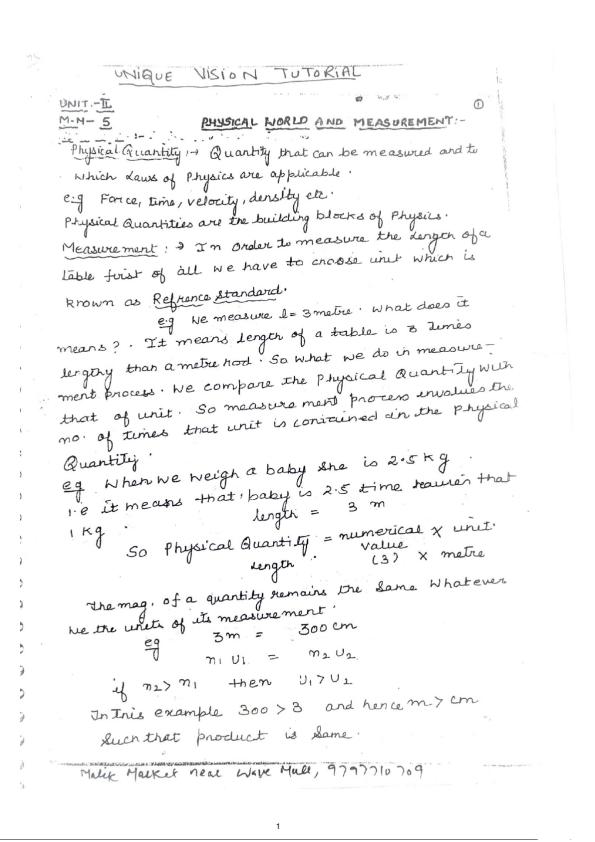 UNIQUE VISION TUTORIAL
UNIT.-II
①
M.N- 5 PHYSICAL WORLD AND MEASUREMENT:-
Physical Quantity :→ Quantity that can be measured and to
which Laws of Physics are applicable.
e.g Force, time, velocity, density etc.
Physical Quantities are the building blocks of Physics.
Measurement : → In order to measure the length of a
table first of all we have to choose unit which is
known as Refrence Standard.
e.g We measure l = 3 metre. What does it
means? . It means length of a table is 3 times
lengthy than a metre rod. So what we do in measure-
ment process. We compare the Physical Quantity with
that of unit. So measurement process involves the
no. of times that unit is contained in the physical
Quantity.
eg When we weigh a baby she is 2.5 kg.
i.e it means that baby is 2.5 time heavier that
1 kg. length = 3 m
So Physical Quantity = numerical value × unit.
length. (3) × metre
The mag. of a quantity remains the same whatever
be the units of its measurement.
eg 3m = 300 cm
n₁ U₁ = n₂ U₂
if n₂ > n₁ then U₁ > U₂
In this example 300 > 3 and hence m > cm
Such that product is same.
Malik Market near Wave Mall, 9797710709
1